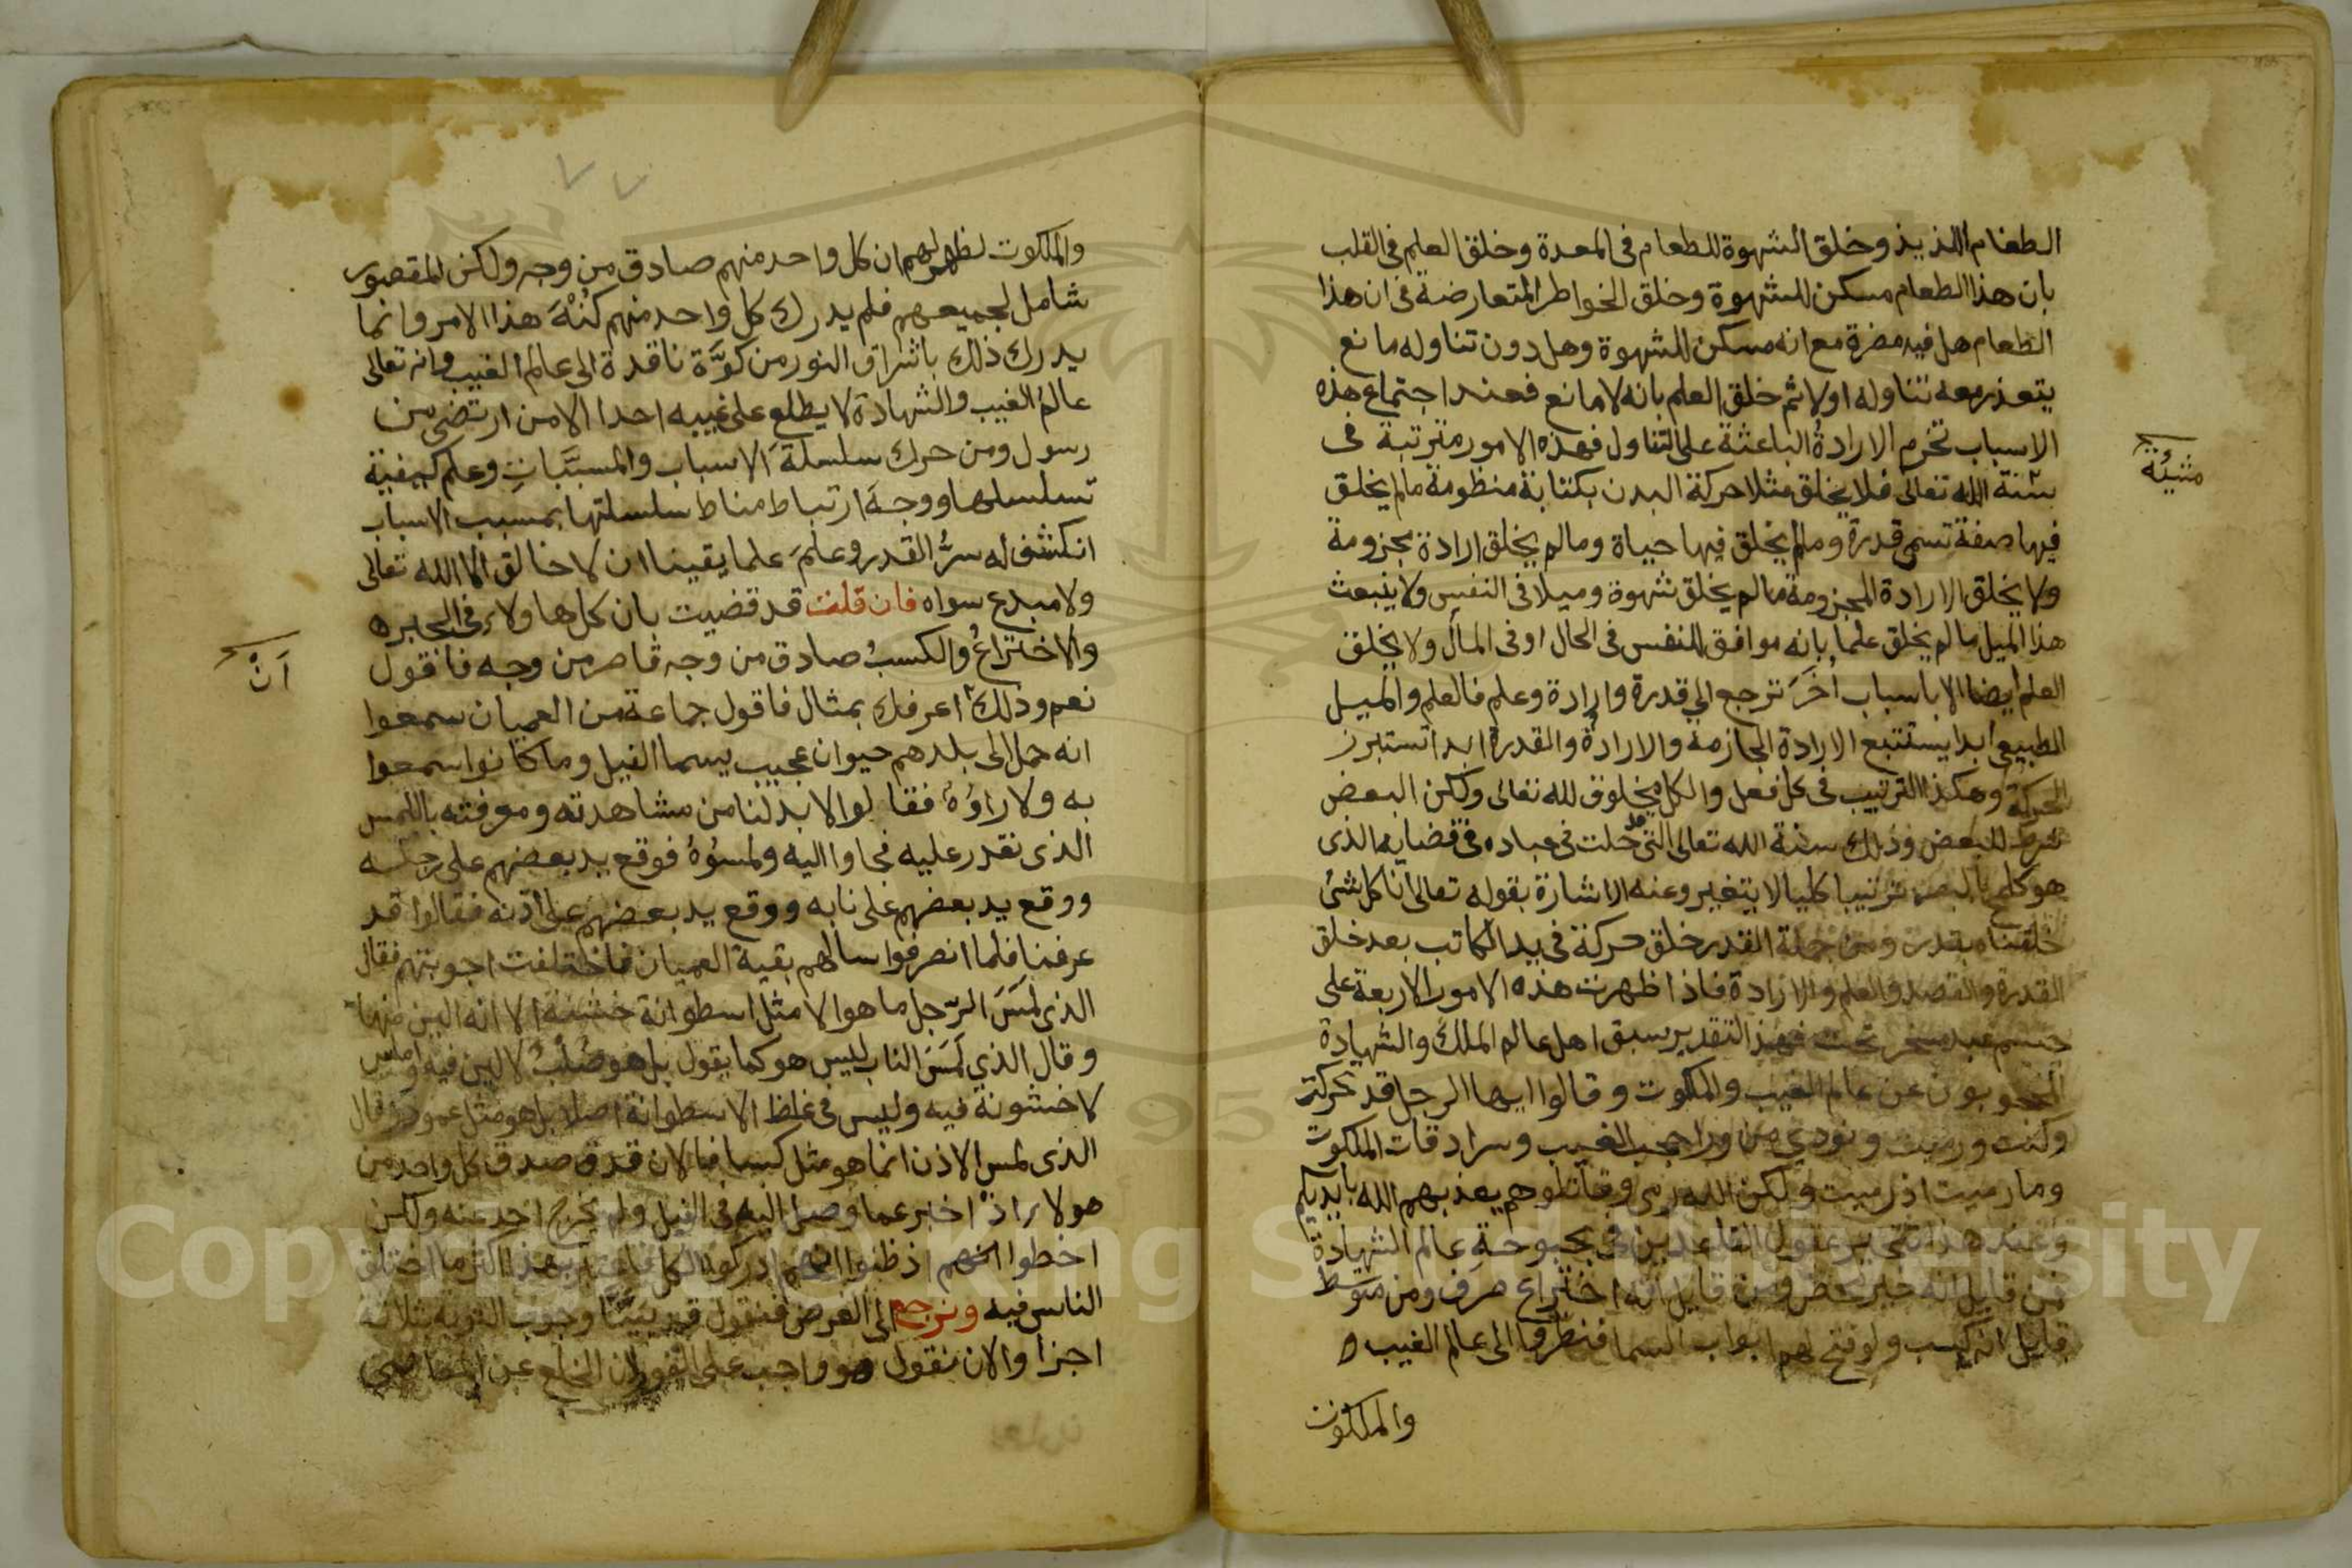 الطعام اللذيذ وخلق الشهوة للطعام فى المعدة وخلق العلم فى القلب
بان هذا الطعام مسكن للشهوة وخلق الخواطر المتعارضة فى ان هذا
الطعام هل فيه مضرة مع انه مسكن للشهوة وهل دون تناوله مانع
يتعذر معه تناوله اولا ثم خلق العلم بانه لا مانع فعند اجتماع هذه
الاسباب تخرم الارادةُ الباعثة على التناول فهذه الامور مترتبة فى
سنة الله تعالى فلا يخلق مثلا حركة البدن بكتابة منظومة مالم يخلق
مشيئة
فيها صفة تسمى قدرة ومالم يخلق فيها حياة ومالم يخلق ارادة مجزومة
ولا يخلق الارادة المجزومة مالم يخلق شهوة وميلا فى النفس ولا ينبعث
هذا الميل مالم يخلق علما بانه موافق للنفس فى الحال او فى المآل ولا يخلق
العلم ايضا الا باسباب اُخَرَ ترجع الى قدرة وارادة وعلم فالعلم والميل
الطبيعى ابدا يستتبع الارادة الجازمة والارادة والقدرة ابدا تستبرز
الحركة وهكذا الترتيب فى كل فعل والكل مخلوق لله تعالى ولكن البعض
شرط للبعض وذلك سنة الله تعالى التى قد خلت فى عباده فى قضايه الذى
هو كلمح بالبصر ترتيبا كليا لا يتغير وعنه الاشارة بقوله تعالى انا كل شئ
خلقناه بقدر ومن جملة القدر خلق حركة فى يد الكاتب بعد خلق
القدرة والقصد والعلم والارادة فاذا ظهرت هذه الامور الاربعة على
جسم عبد مسخر تحت فهذا التقدير سبق اهل عالم الملك والشهادة
المحجوبون عن عالم الغيب والملكوت وقالوا ايها الرجل قد تحركت
وكتبت ورميت ونودي من ورا حجب الغيب وسرادقات الملكوت
وما رميت اذ رميت ولكن الله رمى وقاتلوهم يعذبهم الله بأيديكم
وعند هذا تتحير عقول القاعدين فى بحبوحة عالم الشهادة
فمن قايل انه جبر محض ومن قايل انه اختراع صِرف ومن متوسط
قايل انه كسب ولو فتح لهم ابواب السما فنظروا الى عالم الغيب
والملكوت
٧٧
والملكوت لظهر لهم ان كل واحد منهم صادق من وجه ولكن المقصور
شامل لجميعهم فلم يدرك كل واحد منهم كُنْهَ هذا الامر وانما
يدرك ذلك باشراق النور من كوَّة ناقدة الى عالم الغيب وانه تعالى
عالمُ الغيب والشهادة لا يطلع على غيبه احدا الا من ارتضى من
رسول ومن حرك سلسلة الاسباب والمسبَّبات وعلم كيفية
تسلسلها ووجهَ ارتباط مناط سلسلتها بمسبب الاسباب
انكشف له سرُّ القدر وعلمَ علما يقينا ان لا خالق الا الله تعالى
ولا مبدع سواه فان قلت قد قضيت بان كل هاولاء فى الجبر
والاختراعُ والكسبُ صادق من وجه قاصر من وجه فاقول
اَنّ
نعم وذلك اعرفك بمثال فاقول جماعة من العميان سمعوا
انه حمل الى بلدهم حيوان عجيب يسما الفيل وما كانوا سمعوا
به ولا راوُهُ فقالوا لا بد لنا من مشاهدته ومعرفته باللمس
الذى نقدر عليه فجاوا اليه ولمسُوهُ فوقع يد بعضهم على رجله
ووقع يد بعضهم على نابه ووقع يد بعضهم على أذنه فقالوا قد
عرفنا فلما انصرفوا سالهم بقية العميان فاختلفت اجوبتهم فقال
الذى لمَسَ الرّجل ما هوا لا مثل اسطوانة خشنة الا انه الين منها
وقال الذي لَمَسَ الناب ليس هو كما يقول بل هو صُلْبٌ لا لين فيه واملس
لا خشونة فيه وليس فى غلظ الاسطوانة اصلا بل هو مثل عمود وقال
الذى لمس الاذن انما هو مثل كسا فالان قد صدق كل واحد من
هولا اذ اخبر عما وصل اليه فى الفيل ولم يخرج احد عنه ولكن
اخطوا انهم اذ ظنوا انهم ادركوا الكل بهذا اكثر ما اختلق
الناس فيه ونرجع الى الغرض فنقول قد بيَّنّا وجوب التوبة بثلاثة
اجزا والان نقول هو واجب على الفور ان الخلع عن المعاصى